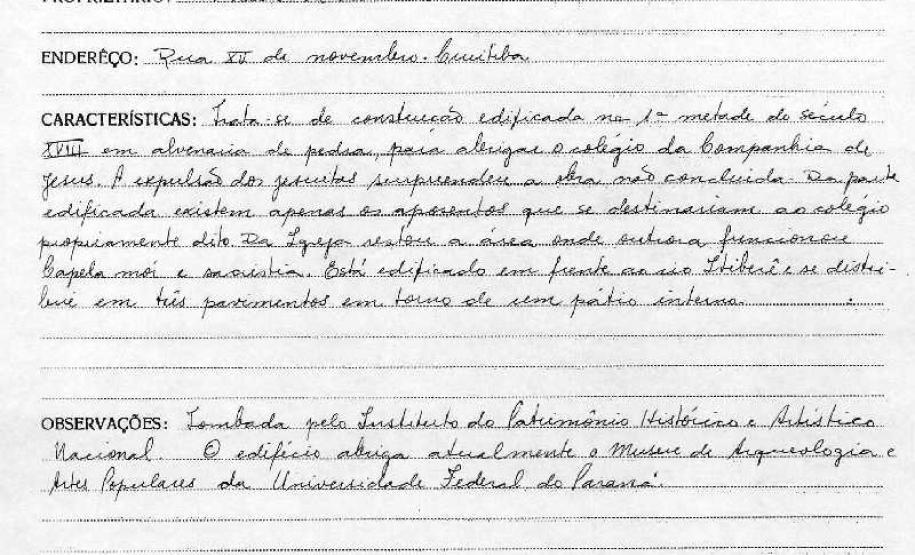 PROPRIETÁRIO:
ENDERÊÇO: Rua XV de novembro. Curitiba
CARACTERÍSTICAS: Trata-se de construção edificada na 1ª metade do século
XVIII em alvenaria de pedra, para abrigar o colégio da Companhia de
Jesus. A expulsão dos jesuitas surpreendeu a obra não concluida. Da parte
edificada existem apenas os aposentos que se destinariam ao colégio
propriamente dito. Da Igreja restou a área onde outrora funcionou
Capela mór e sacristia. Está edificado em frente ao rio Itiberê e se distri-
bue em três pavimentos em torno de um pátio interno.
OBSERVAÇÕES: Tombada pelo Instituto do Patrimônio Histórico e Artístico
Nacional. O edifício abriga atualmente o Museu de Arqueologia e
Artes Populares da Universidade Federal do Paraná.